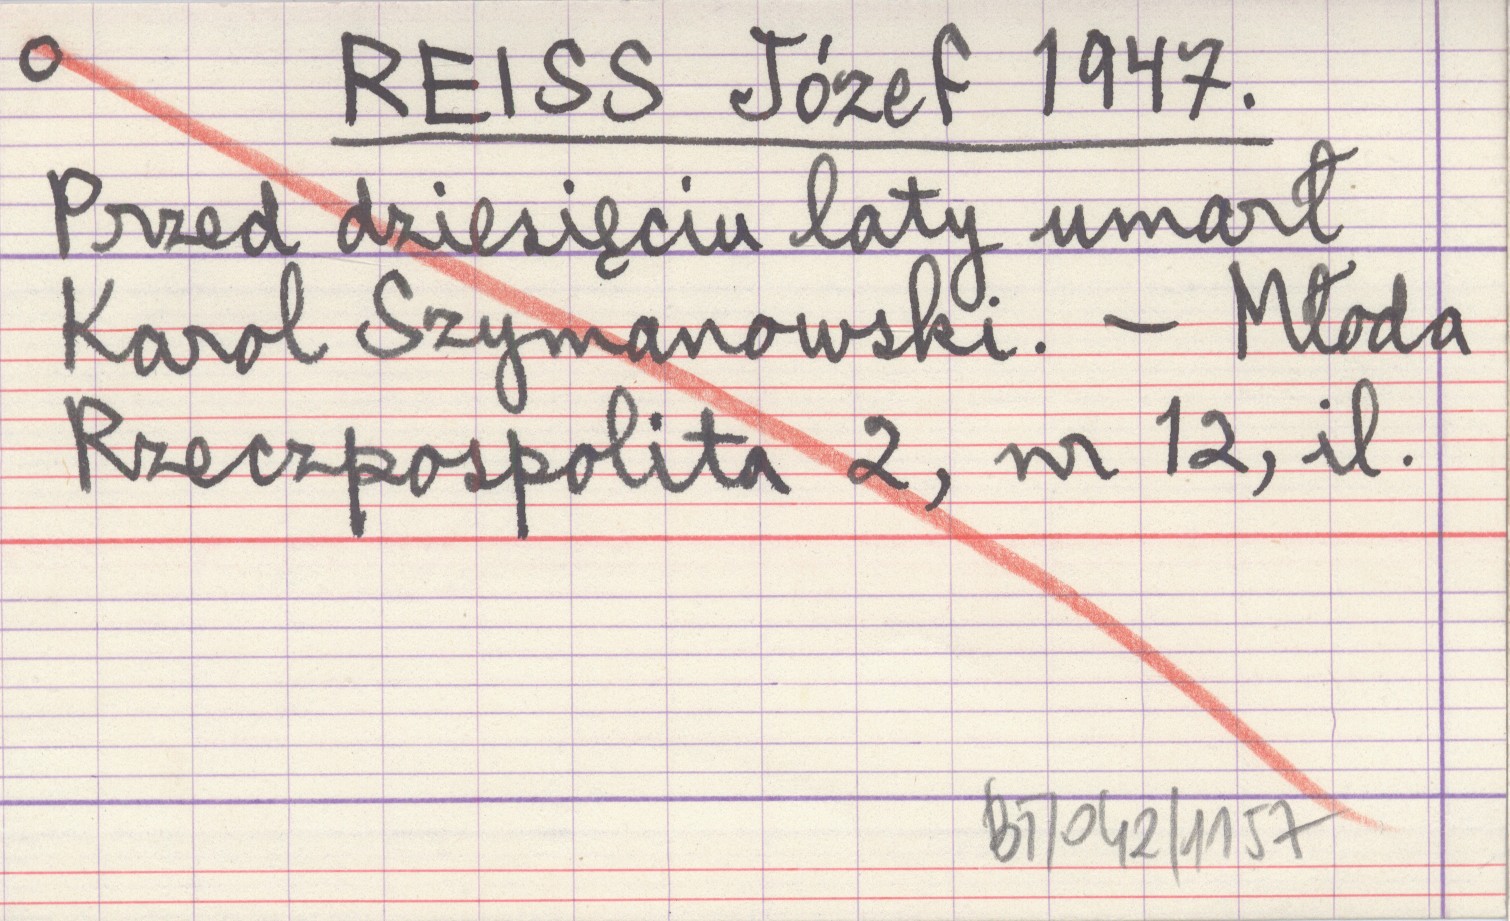 O REISS Józef 1947.
Przed dziesięciu laty umarł
Karol Szymanowski. – Młoda
Rzeczpospolita 2, nr 12, il.
BT/042/1157